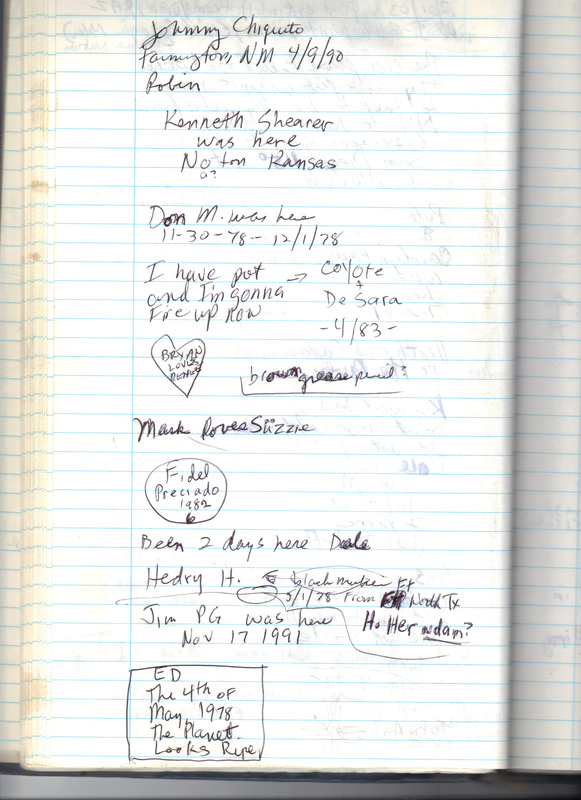 Johnny Chiquito
Farmington, NM 4/9/90
Robin
Kenneth Shearer
was here
No ton Kansas
a?
Don M. was here
11-30-78 - 12/1/78
I have pot → Coyote
and I'm gonna +
Fire up now De Sara
-4/83-
BRYAN
LOVES
brown grease pencil?
Mark loves Suzzie
Fidel
Preciado
1982
6
Been 2 days here Dale
Hedry H. ← black marker
5/1/78 From North Tx
Jim PG was here
Nov 17 1991
ED
The 4th of
May 1978
The Planet
Looks Ripe